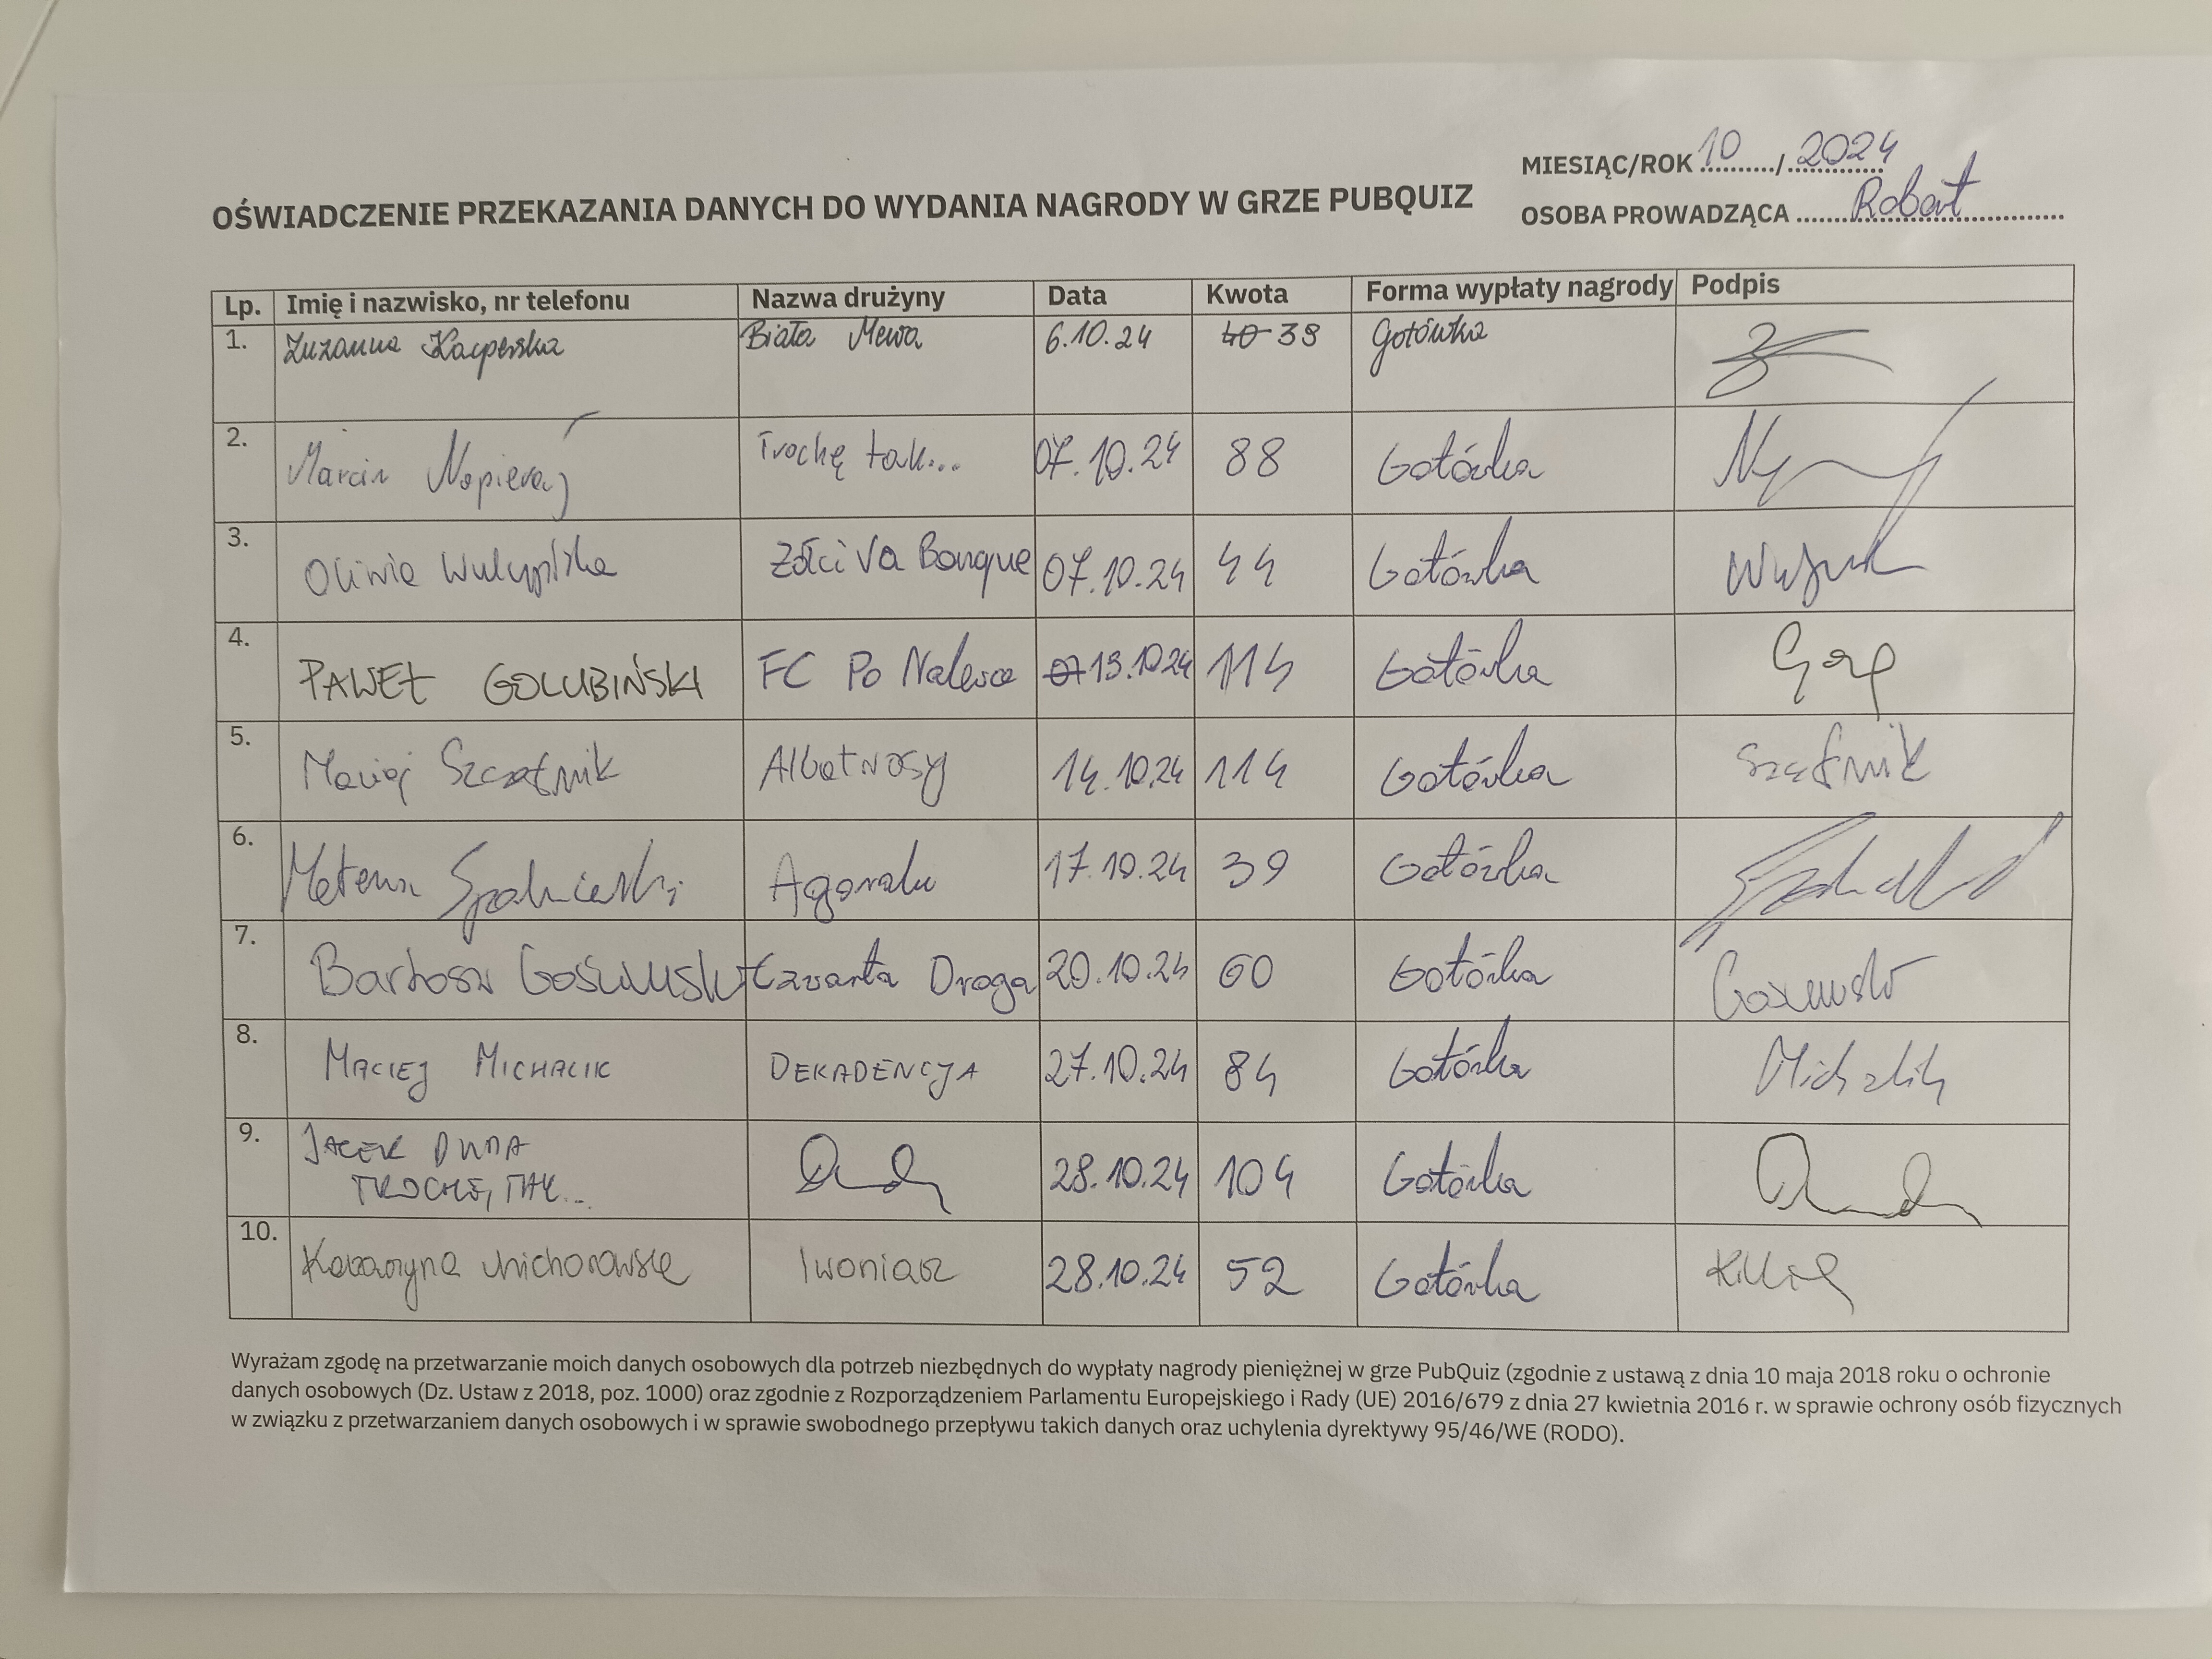 MIESIĄC/ROK 10 / 2024
OŚWIADCZENIE PRZEKAZANIA DANYCH DO WYDANIA NAGRODY W GRZE PUBQUIZ
OSOBA PROWADZĄCA Robert
Lp. Imię i nazwisko, nr telefonu Nazwa drużyny Data Kwota Forma wypłaty nagrody Podpis
1. Zuzanna Kacperska Biała Mewa 6.10.24 40 39 Gotówka
2. Marcin Napieraj Trochę tak... 07.10.24 88 Gotówka
3. Oliwia Żółci Va Banque 07.10.24 44 Gotówka
4. PAWEŁ GOLUBIŃSKI FC Po Nalewce 07 13.10.24 114 Gotówka
5. Maciej Szczęśnik Albatrosy 14.10.24 114 Gotówka
6. Mateusz 17.10.24 39 Gotówka
7. Bartosz Czwarta Droga 20.10.24 60 Gotówka
8. MACIEJ MICHALIK DEKADENCJA 27.10.24 84 Gotówka Michalik
9. JACEK DUDA 28.10.24 104 Gotówka
TROCHĘ, TAK...
10. Katarzyna Michorowska Iwoniacz 28.10.24 52 Gotówka
Wyrażam zgodę na przetwarzanie moich danych osobowych dla potrzeb niezbędnych do wypłaty nagrody pieniężnej w grze PubQuiz (zgodnie z ustawą z dnia 10 maja 2018 roku o ochronie
danych osobowych (Dz. Ustaw z 2018, poz. 1000) oraz zgodnie z Rozporządzeniem Parlamentu Europejskiego i Rady (UE) 2016/679 z dnia 27 kwietnia 2016 r. w sprawie ochrony osób fizycznych
w związku z przetwarzaniem danych osobowych i w sprawie swobodnego przepływu takich danych oraz uchylenia dyrektywy 95/46/WE (RODO).